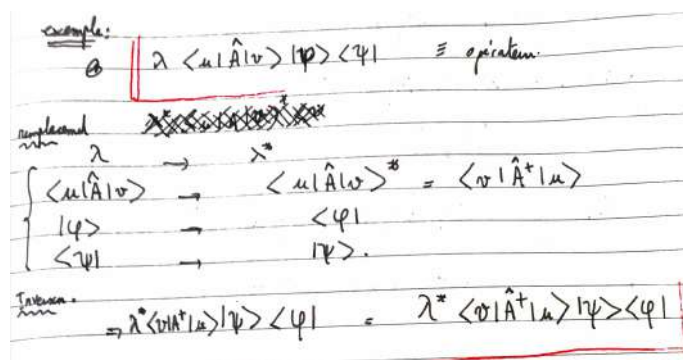 exemple:
λ <u|Â|v> |φ><ψ| ≡ opérateur.
remplacement
λ → λ*
<u|Â|v> → <u|Â|v>* = <v|Â⁺|u>
|φ> → <φ|
<ψ| → |ψ>.
Inversion.
⇒ λ*<v|A⁺|u>|ψ><φ| = λ* <v|Â⁺|u>|ψ><φ|